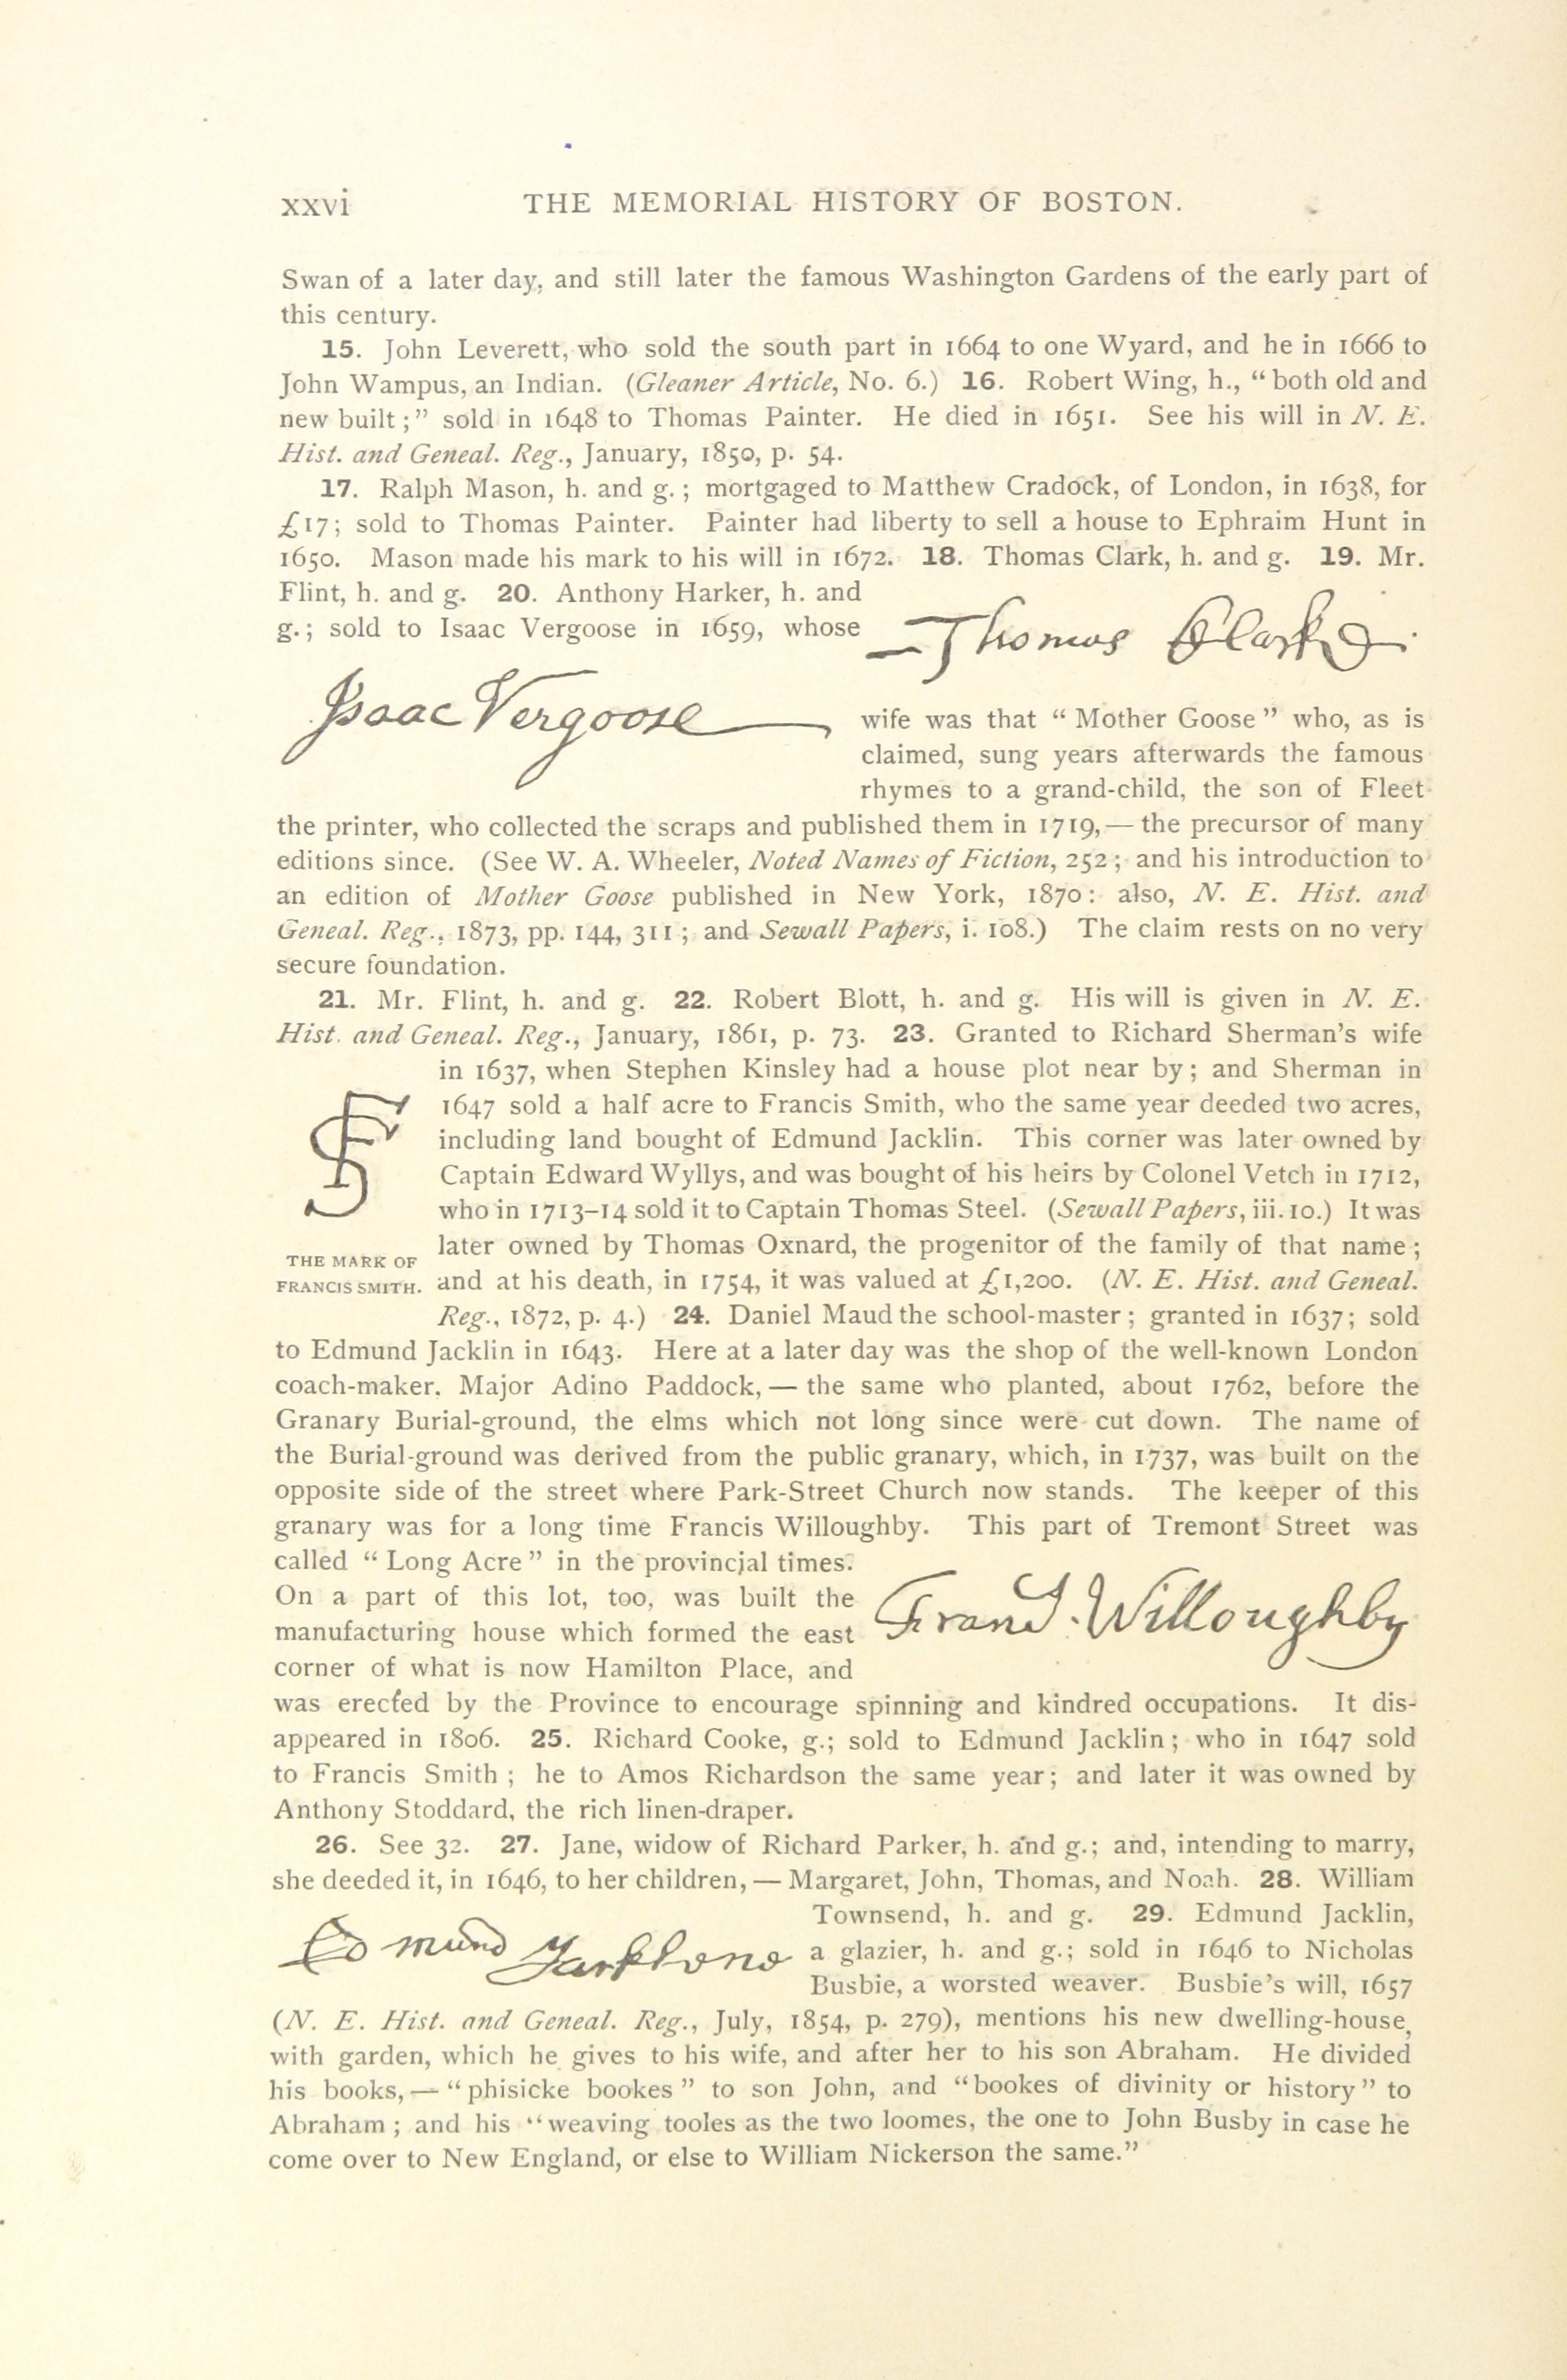 xxvi THE MEMORIAL HISTORY OF BOSTON.
Swan of a later day, and still later the famous Washington Gardens of the early part of
this century.
15. John Leverett, who sold the south part in 1664 to one Wyard, and he in 1666 to
John Wampus, an Indian. (Gleaner Article, No. 6.) 16. Robert Wing, h., “both old and
new built;” sold in 1648 to Thomas Painter. He died in 1651. See his will in N. E.
Hist. and Geneal. Reg., January, 1850, p. 54.
17. Ralph Mason, h. and g.; mortgaged to Matthew Cradock, of London, in 1638, for
£17; sold to Thomas Painter. Painter had liberty to sell a house to Ephraim Hunt in
1650. Mason made his mark to his will in 1672. 18. Thomas Clark, h. and g. 19. Mr.
Flint, h. and g. 20. Anthony Harker, h. and
g.; sold to Isaac Vergoose in 1659, whose
Thomas Clarke
Isaac Vergoose
wife was that “Mother Goose” who, as is
claimed, sung years afterwards the famous
rhymes to a grand-child, the son of Fleet
the printer, who collected the scraps and published them in 1719,—the precursor of many
editions since. (See W. A. Wheeler, Noted Names of Fiction, 252; and his introduction to
an edition of Mother Goose published in New York, 1870: also, N. E. Hist. and
Geneal. Reg., 1873, pp. 144, 311; and Sewall Papers, i. 108.) The claim rests on no very
secure foundation.
21. Mr. Flint, h. and g. 22. Robert Blott, h. and g. His will is given in N. E.
Hist. and Geneal. Reg., January, 1861, p. 73. 23. Granted to Richard Sherman’s wife
in 1637, when Stephen Kinsley had a house plot near by; and Sherman in
1647 sold a half acre to Francis Smith, who the same year deeded two acres,
including land bought of Edmund Jacklin. This corner was later owned by
Captain Edward Wyllys, and was bought of his heirs by Colonel Vetch in 1712,
who in 1713–14 sold it to Captain Thomas Steel. (Sewall Papers, iii. 10.) It was
later owned by Thomas Oxnard, the progenitor of the family of that name;
and at his death, in 1754, it was valued at £1,200. (N. E. Hist. and Geneal.
FS
THE MARK OF
FRANCIS SMITH.
Reg., 1872, p. 4.) 24. Daniel Maud the school-master; granted in 1637; sold
to Edmund Jacklin in 1643. Here at a later day was the shop of the well-known London
coach-maker, Major Adino Paddock,—the same who planted, about 1762, before the
Granary Burial-ground, the elms which not long since were cut down. The name of
the Burial-ground was derived from the public granary, which, in 1737, was built on the
opposite side of the street where Park-Street Church now stands. The keeper of this
granary was for a long time Francis Willoughby. This part of Tremont Street was
called “Long Acre” in the provincial times.
On a part of this lot, too, was built the
manufacturing house which formed the east
corner of what is now Hamilton Place, and
Willoughby
was erected by the Province to encourage spinning and kindred occupations. It dis-
appeared in 1806. 25. Richard Cooke, g.; sold to Edmund Jacklin; who in 1647 sold
to Francis Smith; he to Amos Richardson the same year; and later it was owned by
Anthony Stoddard, the rich linen-draper.
26. See 32. 27. Jane, widow of Richard Parker, h. and g.; and, intending to marry,
she deeded it, in 1646, to her children,—Margaret, John, Thomas, and Noah. 28. William
Townsend, h. and g. 29. Edmund Jacklin,
a glazier, h. and g.; sold in 1646 to Nicholas
Busbie, a worsted weaver. Busbie’s will, 1657
Edmund
(N. E. Hist. and Geneal. Reg., July, 1854, p. 279), mentions his new dwelling-house,
with garden, which he gives to his wife, and after her to his son Abraham. He divided
his books,—“phisicke bookes” to son John, and “bookes of divinity or history” to
Abraham; and his “weaving tooles as the two loomes, the one to John Busby in case he
come over to New England, or else to William Nickerson the same.”